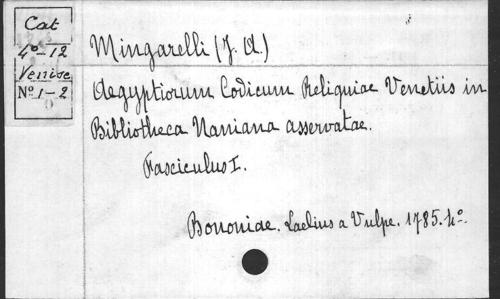 Cat
4º-12
Venise
Nº 1-2
Mingarelli (J. A.)
Aegyptiorum Codicum Reliquiae Venetiis in
Bibliotheca Naniana asservatae.
Fasciculus I.
Bononiae. Laelius a Vulpe. 1785. 4º.